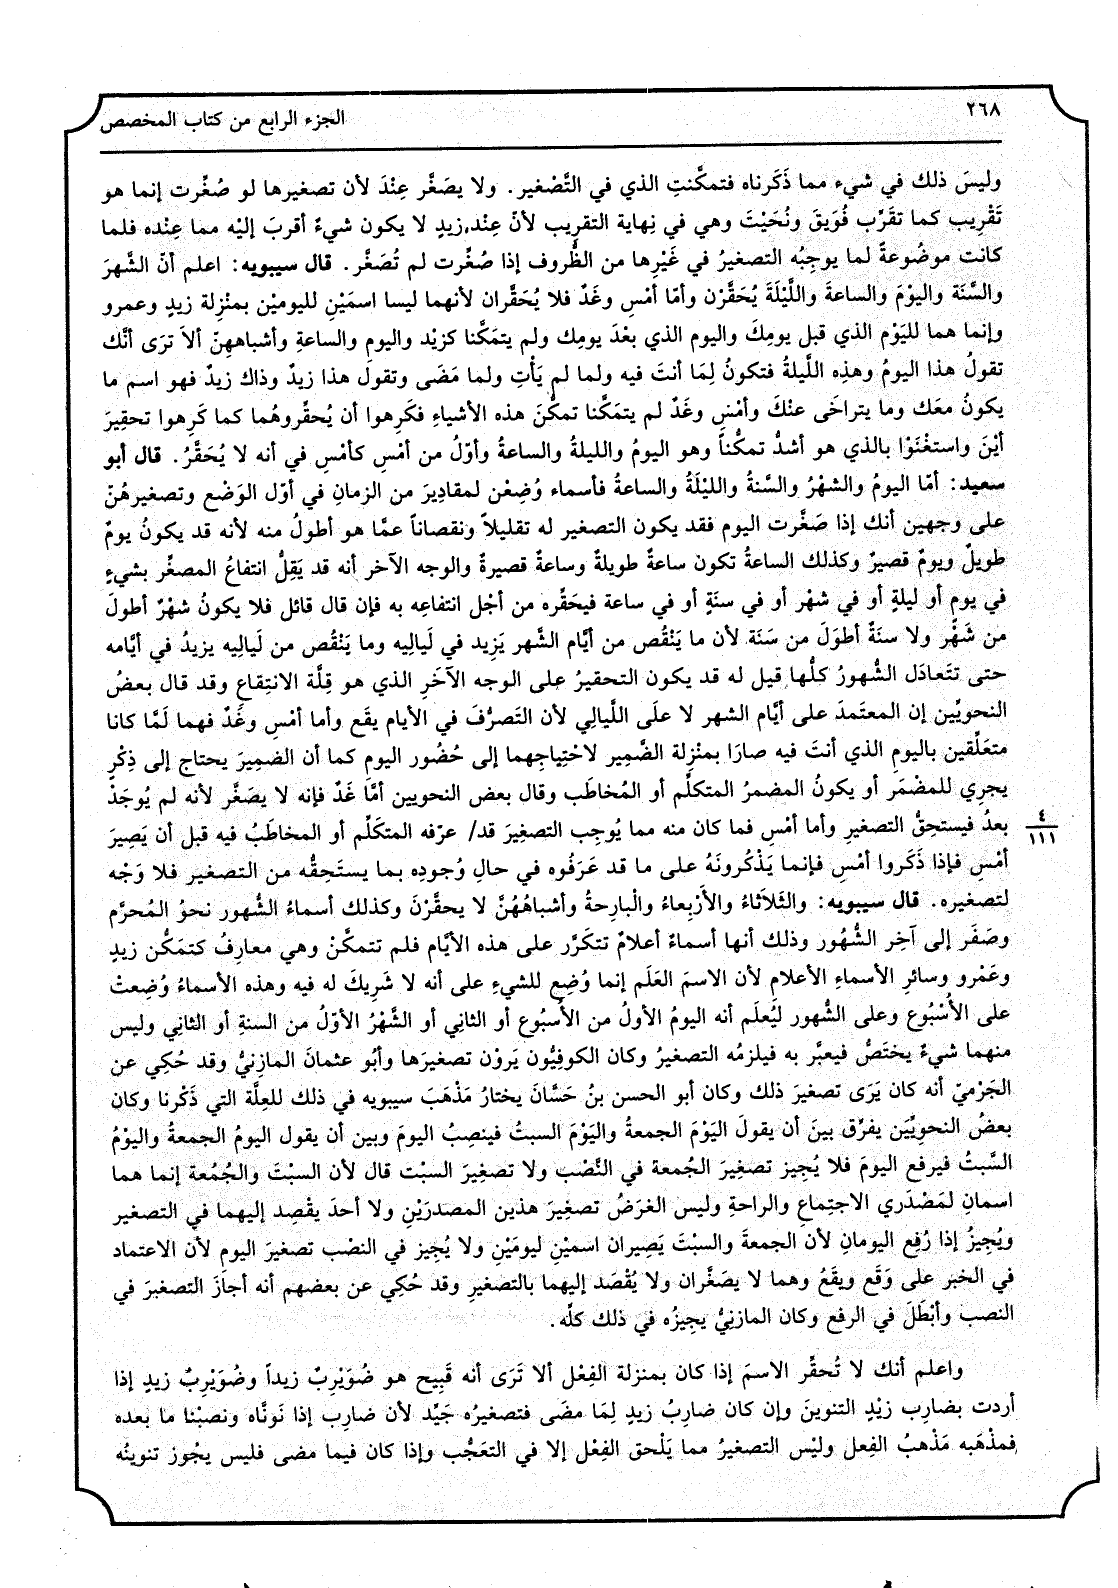 ٢٦٨
الجزء الرابع من كتاب المخصص
وليسَ ذلك في شيء مما ذَكَرناه فتمكَّنتِ الذي في التَّصْغير. ولا يصَغَّر عِنْدَ لأن تصغيرها لو صُغِّرت إنما هو
تَقْرِيب كما تقَرِّب فُوَيقَ ونُحَيْتَ وهي في نِهاية التقريب لأنّ عِنْد زيدٍ لا يكون شيءٌ أقربَ إليْه مما عِنْده فلما
كانت موضُوعةً لما يوجِبُه التصغيرُ في غَيْرِها من الظُّروف إذا صُغِّرت لم تُصَغَّر. قال سيبويه: اعلم أنّ الشَّهرَ
والسَّنَة واليوْمَ والساعةَ واللَّيْلَةَ يُحَقَّرْن وأمّا أمْسِ وغَدٌ فلا يُحَقَّران لأنهما ليسا اسمَيْنِ لليوميْن بمنْزِلة زيدٍ وعمرو
وإنما هما لليَوْم الذي قبل يومِكَ واليوم الذي بعْدَ يومِك ولم يتمَكَّنا كزيْد واليومِ والساعةِ وأشباههِنّ ألاَ ترَى أنَّك
تقولُ هذا اليومُ وهذِه اللَّيلةُ فتكونُ لِمَا أنتَ فيه ولما لم يَأْتِ ولما مَضَى وتقول هذا زيدٌ وذاك زيدٌ فهو اسم ما
يكونُ معَك وما يتراخَى عنْكَ وأمْسِ وغَدٌ لم يتمَكَّنا تمكُّنَ هذه الأشياءِ فكَرِهوا أن يُحقِّروهُما كما كَرِهوا تحقِيرَ
أيْنَ واستغْنَوْا بالذي هو أشدُّ تمكُّناً وهو اليومُ والليلةُ والساعةُ وأوّلُ من أمْسِ كأمْسِ في أنه لا يُحَقَّرُ. قال أبو
سعيد: أمّا اليومُ والشهْرُ والسَّنةُ والليْلَةُ والساعةُ فأسماء وُضِعْن لمقادِيرَ من الزمانِ في أوّل الوَضْع وتصغيرهُنّ
على وجهين أنك إذا صَغَّرت اليوم فقد يكون التصغير له تقليلاً ونقصاناً عمَّا هو أطولُ منه لأنه قد يكونُ يومٌ
طويلٌ ويومٌ قصيرٌ وكذلك الساعةُ تكون ساعةٌ طويلةٌ وساعةٌ قصيرةٌ والوجه الآخر أنه قد يَقِلُّ انتفاعُ المصغِّر بشيءٍ
في يوم أو ليلةٍ أو في شهْر أو في سنَةٍ أو في ساعة فيحَقِّره من أجْل انتفاعِه به فإن قال قائل فلا يكونُ شهْرٌ أطولَ
من شَهْر ولا سنةٌ أطوَلَ من سَنَة لأن ما يَنْقُص من أيَّام الشَّهر يَزِيد في لَيالِيه وما يَنْقُص من لَيالِيه يزيدُ في أيَّامه
حتى تتَعادَل الشُّهورُ كلُّها قيل له قد يكون التحقيرُ على الوجه الآخَرِ الذي هو قِلَّة الانتِفاعِ وقد قال بعضُ
النحويِّين إن المعتَمدَ على أيَّام الشهر لا علَى اللَّيالِي لأن التَصرُّفَ في الأيام يقَع وأما أمْسِ وغَدٌ فهما لَمَّا كانا
متعَلِّقين باليوم الذي أنتَ فيه صارَا بمنْزِلة الضَّمِير لاحْتِياجِهما إلى حُضُور اليوم كما أن الضمِيرَ يحتاج إلى ذِكْرٍ
يجرِي للمضْمَر أو يكونُ المضمرُ المتكلِّم أو المُخاطَب وقال بعض النحويين أمَّا غَدٌ فإنه لا يصَغَّر لأنه لم يُوجَدْ
بعدُ فيستحِقُّ التصغير وأما أمْسِ فما كان منه مما يُوجِب التصغِيرَ قد/ عرَفه المتكَلِّم أو المخاطَبُ فيه قبل أن يَصِيرَ
٤
١١١
أمْسِ فإذا ذَكَروا أمْسِ فإنما يَذْكُرونَهُ على ما قد عَرَفُوه في حالِ وُجودِه بما يستَحِقُّه من التصغير فلا وَجْه
لتصغيره. قال سيبويه: والثَّلاَثاءُ والأَرْبِعاءُ والْبارِحةُ وأشباهُهُنَّ لا يحقَّرْنَ وكذلك أسماءُ الشُّهور نحوُ المُحرَّم
وصَفَر إلى آخِر الشُّهُور وذلك أنها أسماءٌ أعلامٌ تتكَرَّر على هذه الأيَّام فلم تتمكَّنْ وهي معارِفُ كتمَكُّن زيدٍ
وعَمْرو وسائرِ الأسماءِ الأعلامِ لأن الاسمَ العَلَم إنما وُضِع للشيءِ على أنه لا شَرِيكَ له فيه وهذه الأسماءُ وُضِعتْ
على الأُسْبُوع وعلى الشُّهور ليُعلَم أنه اليومُ الأولُ من الأُسبُوع أو الثانِي أو الشَّهْرُ الأوّلُ من السنةِ أو الثانِي وليس
منهما شيءٌ يختَصُّ فيعبَّر به فيلزمُه التصغيرُ وكان الكوفِيُّون يَرَوْن تصغيرَها وأبُو عثمانَ المازِنيُّ وقد حُكِي عن
الجَرْمِيّ أنه كان يَرَى تصغيرَ ذلك وكان أبو الحسن بنُ حَسَّانَ يختارُ مَذْهَبَ سيبويه في ذلك للعِلَّة التي ذَكَرْنا وكان
بعضُ النحويِّيَن يفرِّق بينَ أن يقولَ اليَوْمَ الجمعةُ واليَوْمَ السبتُ فينصِبُ اليومَ وبين أن يقول اليومُ الجمعةُ واليوْمُ
السَّبتُ فيرفع اليومَ فلا يُجِيز تصغِيرَ الجُمعة في النَّصْب ولا تصغِيرَ السبْت قال لأن السبْتَ والجُمُعة إنما هما
اسمانِ لمَصْدَري الاجتِماعِ والراحةِ وليس الغرَضُ تصغِيرَ هذين المصدرَيْنِ ولا أحدَ يقْصِد إليهما في التصغير
ويُجِيزُ إذا رُفِع اليومانِ لأن الجمعةَ والسبْتَ يَصِيران اسميْنِ ليومَيْنِ ولا يُجِيز في النصْب تصغيرَ اليوم لأن الاعتماد
في الخبر على وَقَع ويقَعُ وهما لا يصَغَّران ولا يُقْصَد إليهما بالتصغيرِ وقد حُكِي عن بعضهم أنه أجازَ التصغيرَ في
النصب وأبْطَلَ في الرفع وكان المازنِيُّ يجِيزُه في ذلك كلِّه.
واعلم أنك لا تُحقِّر الاسمَ إذا كان بمنزلة الفِعْل ألا تَرَى أنه قَبِيح هو ضُوَيْرِبٌ زيداً وضُوَيْرِبُ زيدٍ إذا
أردت بضارِب زيْدٍ التنوينَ وإن كان ضارِبُ زيدٍ لِمَا مضَى فتصغيرُه جَيِّد لأن ضارِب إذا نَونَّاه ونصبْنا ما بعده
فمذْهَبه مَذْهبُ الفِعل وليْس التصغيرُ مما يَلْحق الفِعْل إلا في التعَجُّب وإذا كان فيما مضى فليس يجُوز تنوينُه